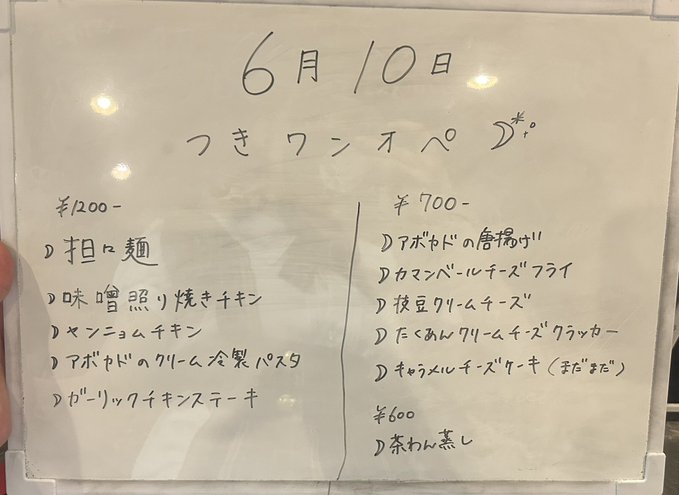 6月10日
つきワンオペ
¥1200-
担々麺
味噌照り焼きチキン
ヤンニョムチキン
アボカドのクリーム冷製パスタ
ガーリックチキンステーキ
¥700-
アボカドの唐揚げ
カマンベールチーズフライ
枝豆クリームチーズ
たくあんクリームチーズクラッカー
キャラメルチーズケーキ(まだまだ)
¥600
茶わん蒸し